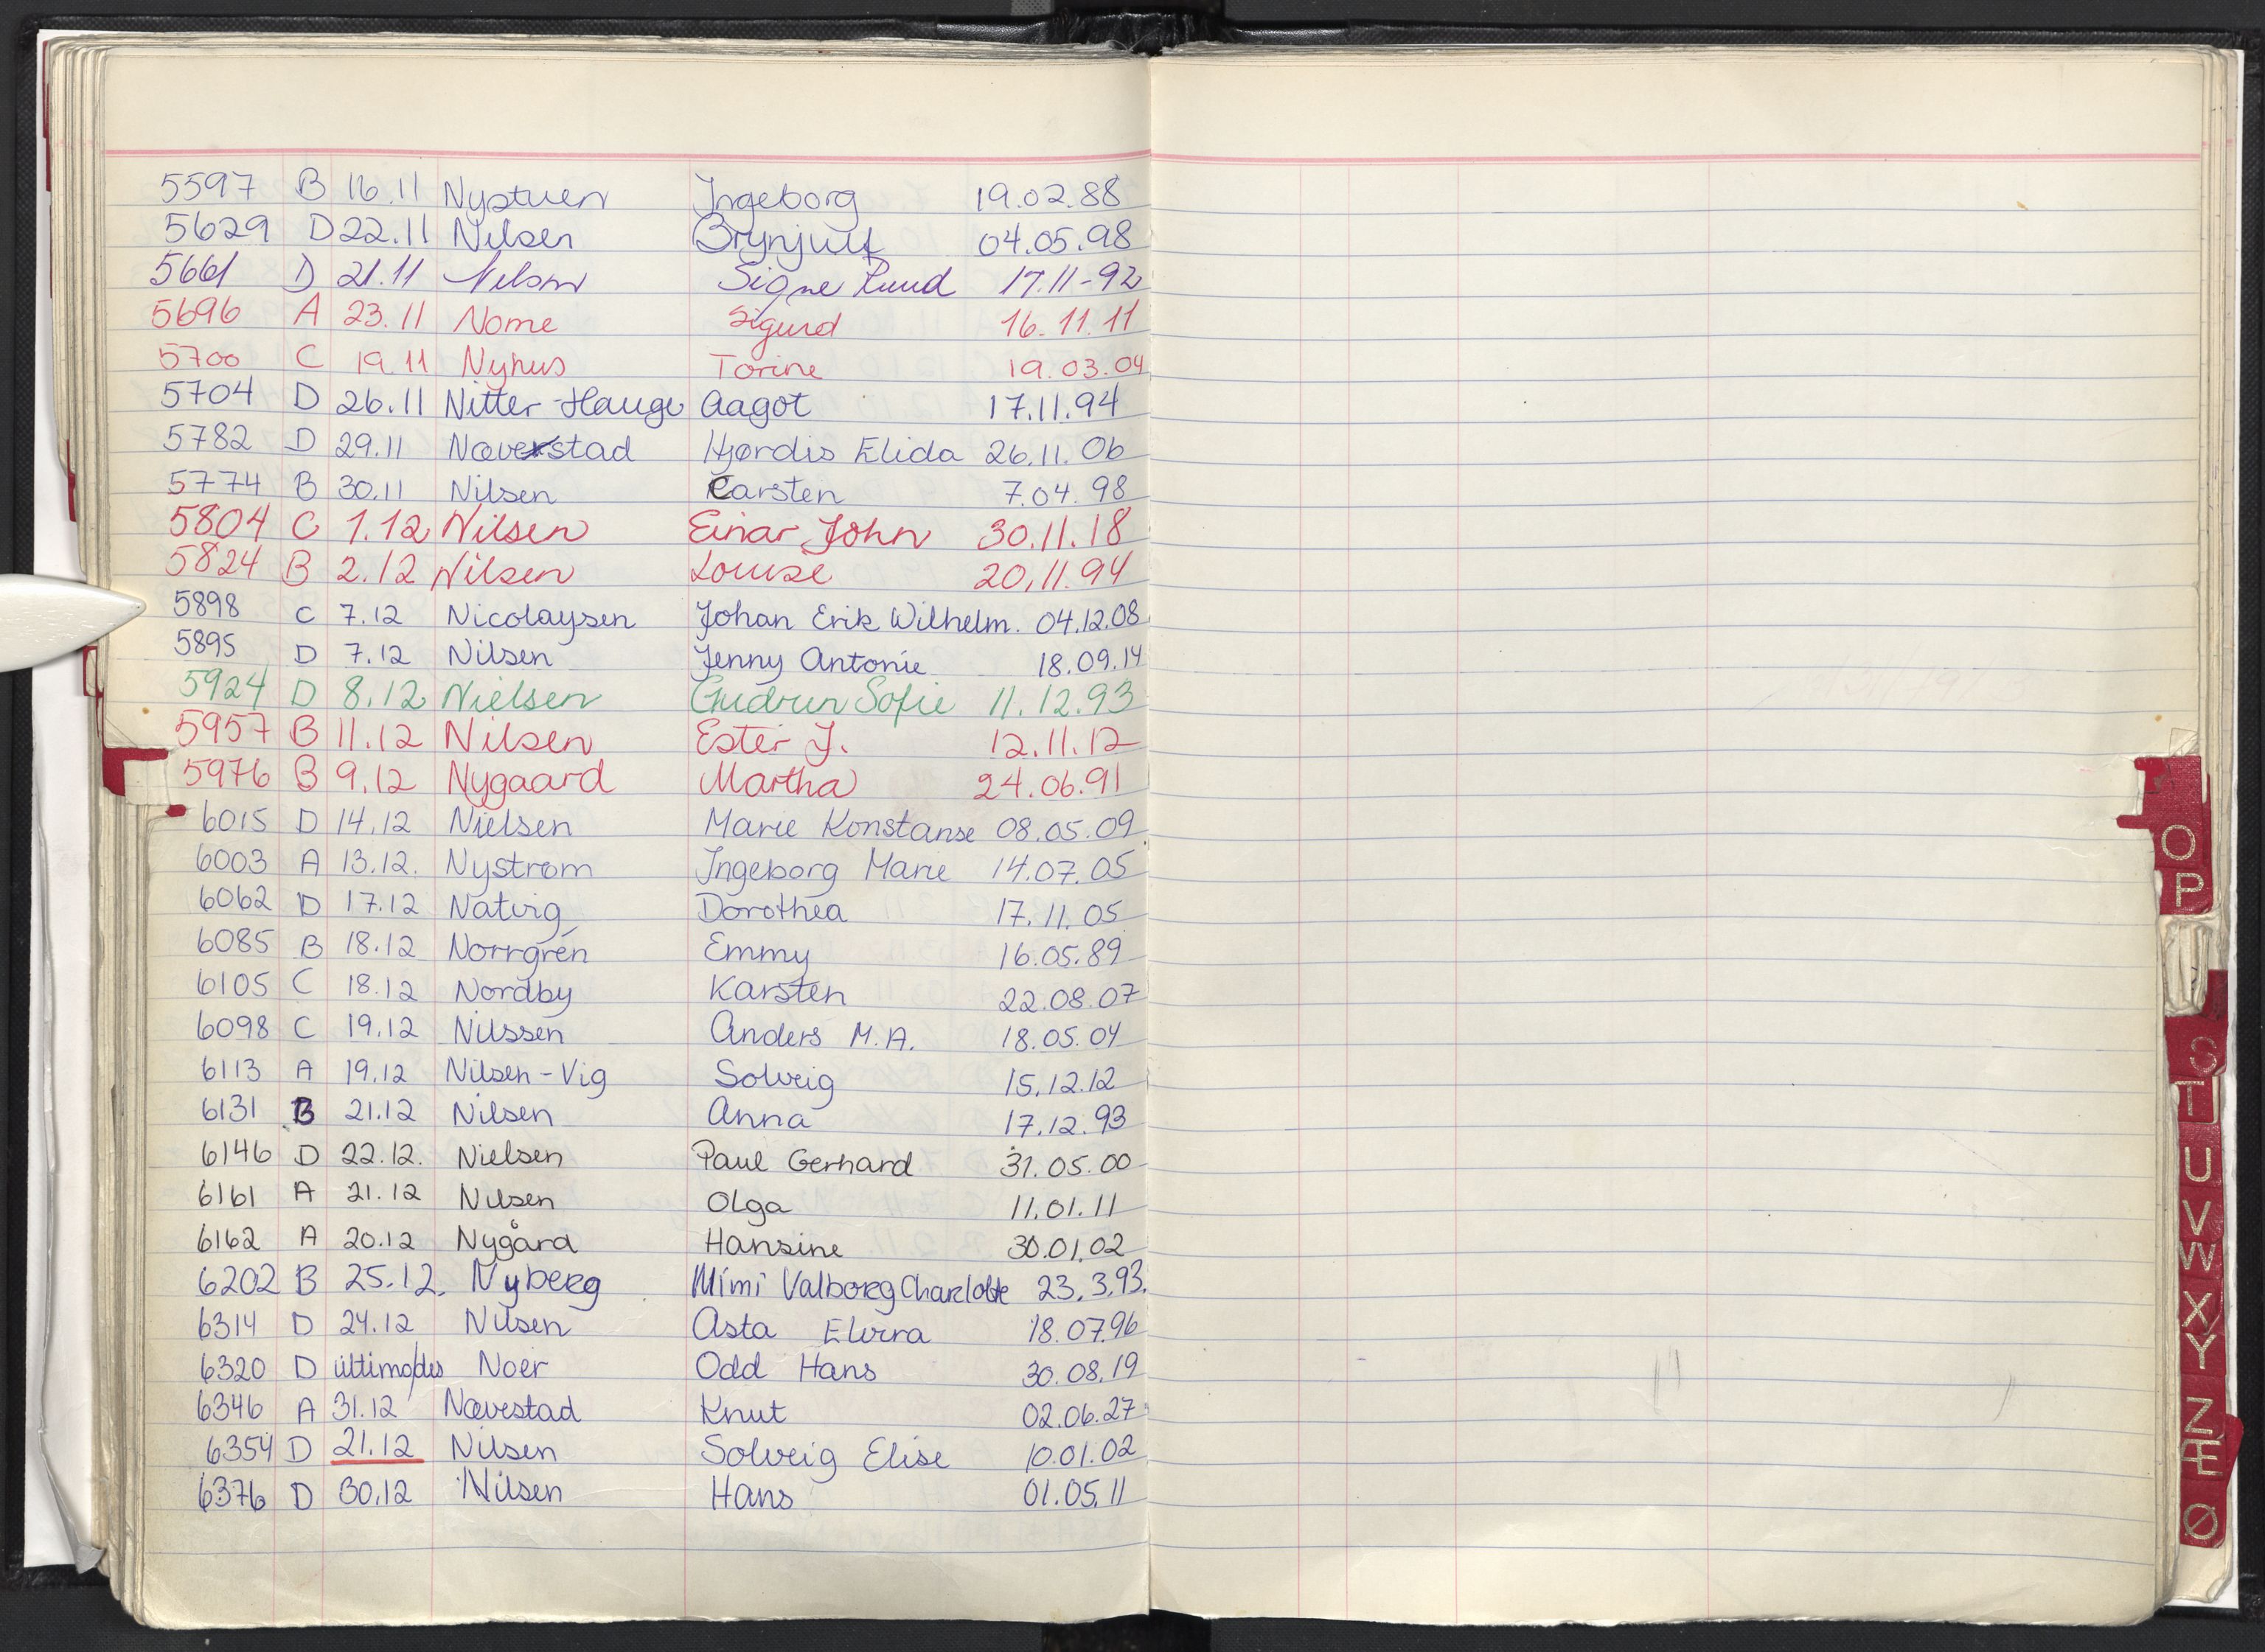 5597 B 16.11 Nystuen Ingeborg 19.02.88
5629 D 22.11 Nilsen Brynjulf 04.05.98
5661 D 21.11 Nilsen Signe Ruud 17.11-92
5696 A 23.11 Nome Sigurd 16.11.11
5700 C 19.11 Nyhus Torine 19.03.04
5704 D 26.11 Nitter-Hauge Aagot 17.11.94
5782 D 29.11 Næverstad Hjørdis Elida 26.11.06
5774 B 30.11 Nilsen Carsten 7.04.98
5804 C 1.12 Nilsen Einar John 30.11.18
5824 B 2.12 Nilsen Louise 20.11.94
5898 C 7.12 Nicolaysen Johan Erik Wilhelm. 04.12.08
5895 D 7.12 Nilsen Jenny Antonie 18.09.14
5924 D 8.12 Nielsen Gudrun Sofie 11.12.93
5957 B 11.12 Nilsen Ester J. 12.11.12
5976 B 9.12 Nygaard Martha 24.06.91
6015 D 14.12 Nielsen Marie Konstanse 08.05.09
6003 A 13.12. Nystrøm Ingeborg Marie 14.07.05
6062 D 17.12 Natvig Dorothea 17.11.05
6085 B 18.12 Norrgrén Emmy 16.05.89
6105 C 18.12 Nordby Karsten 22.08.07
6098 C 19.12 Nilssen Anders M.A. 18.05.04
6113 A 19.12 Nilsen-Vig Solveig 15.12.12
6131 B 21.12 Nilsen Anna 17.12.93
6146 D 22.12. Nielsen Paul Gerhard 31.05.00
6161 A 21.12 Nilsen Olga 11.01.11
6162 A 20.12 Nygård Hansine 30.01.02
6202 B 25.12. Nyberg Mimi Valborg Charlotte 23.3.93.
6314 D 24.12 Nilsen Asta Elvira 18.07.96
6320 D ultimo/des Noer Odd Hans 30.08.19
6346 A 31.12 Nævestad Knut 02.06.27
6354 D 21.12 Nilsen Solveig Elise 10.01.02
6376 D 30.12 Nilsen Hans 01.05.11
O
P
S
T
U
V
W
X
Y
Z
Æ
Ø